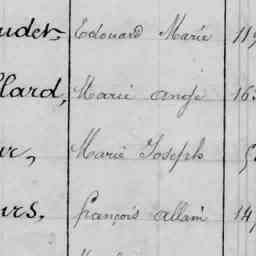 udet, Edouard Marie 119
llard, Marie ange 16
ur, Marie Joseph
urs, françois allain 14